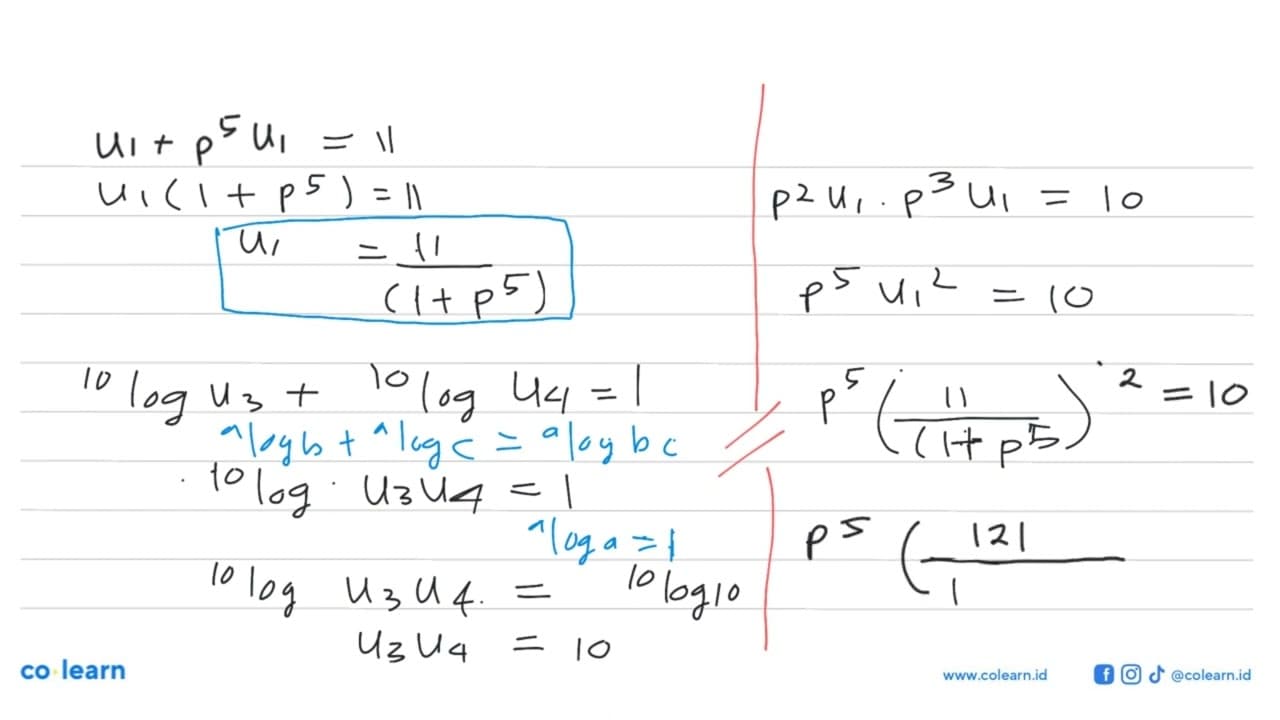 u₁ + p⁵ u₁ = 11
u₁ (1 + p⁵) = 11
u₁ = 11/(1 + p⁵)
¹⁰log u₃ + ¹⁰log u₄ = 1
ᵃlog b + ᵃlog c = ᵃlog bc
¹⁰log u₃u₄ = 1
ᵃlog a = 1
¹⁰log u₃u₄ = ¹⁰log 10
u₃u₄ = 10
p² u₁ . p³ u₁ = 10
p⁵ u₁² = 10
p⁵ (11/(1 + p⁵))² = 10
p⁵ (121/1
co learn
www.colearn.id
@colearn.id